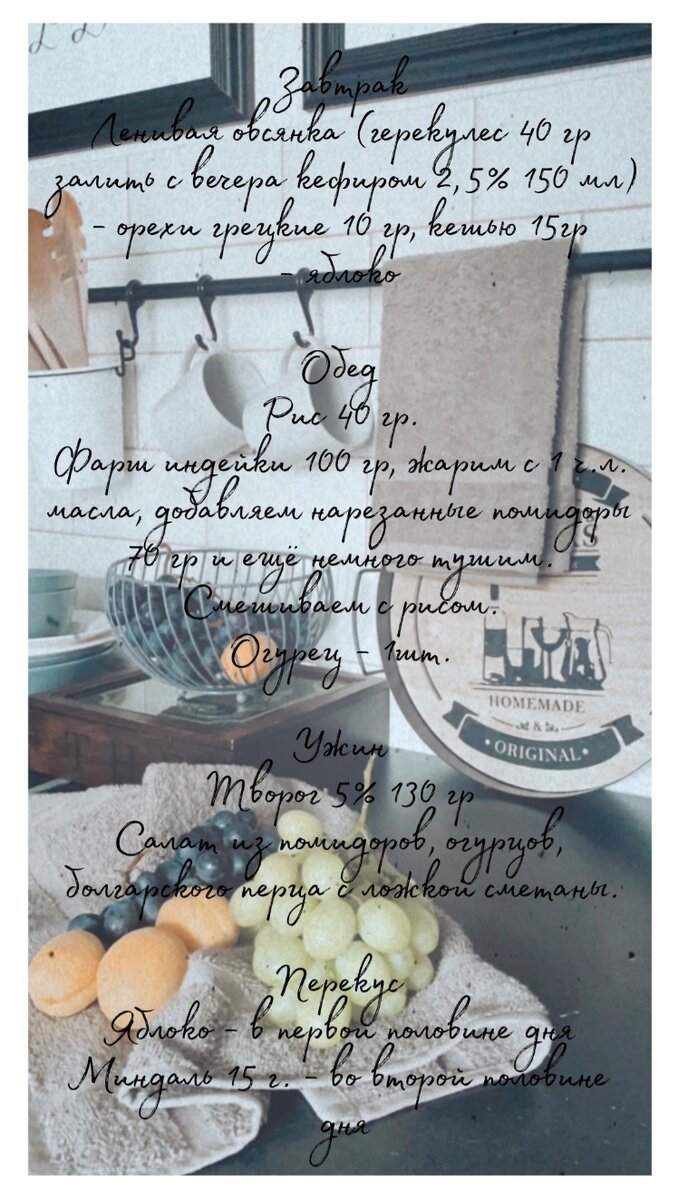 Завтрак
Ленивая овсянка (герекулес 40 гр
залить с вечера кефиром 2,5% 150 мл)
- орехи грецкие 10 гр, кешью 15гр
- яблоко
Обед
Рис 40 гр.
Фарш индейки 100 гр, жарим с 1 ч.л.
масла, добавляем нарезанные помидоры
70 гр и ещё немного тушим.
Смешиваем с рисом.
Огурец - 1шт.
HOMEMADE
&
• ORIGINAL •
Ужин
Творог 5% 130 гр
Салат из помидоров, огурцов,
болгарского перца с ложкой сметаны.
Перекус
Яблоко - в первой половине дня
Миндаль 15 г. - во второй половине
дня